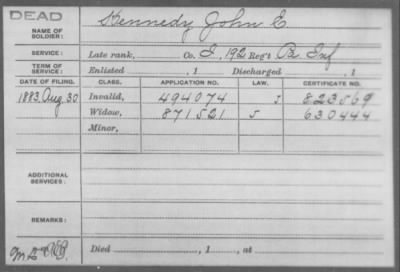 DEAD
NAME OF SOLDIER: Kennedy John E
SERVICE: Late rank, Co. I, 192 Reg't Pa Inf
TERM OF SERVICE: Enlisted , 1 Discharged , 1
DATE OF FILING. CLASS. APPLICATION NO. LAW. CERTIFICATE NO.
1883 Aug 30 Invalid, 494074 J 823569
Widow, 871521 S 630444
Minor,
ADDITIONAL SERVICES:
REMARKS:
Died , 1 , at